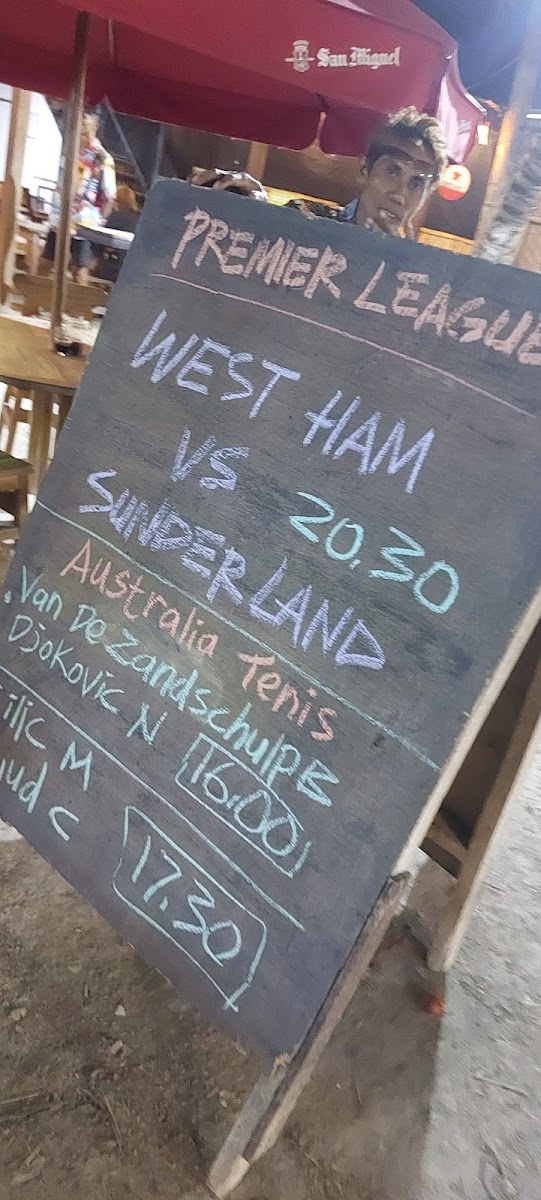 San Miguel
PREMIER LEAGUE
WEST HAM
VS
20.30
SUNDERLAND
Australia Tenis
Van De Zandschulp B
Djokovic N
16.00
ilic M
uud C
17.30